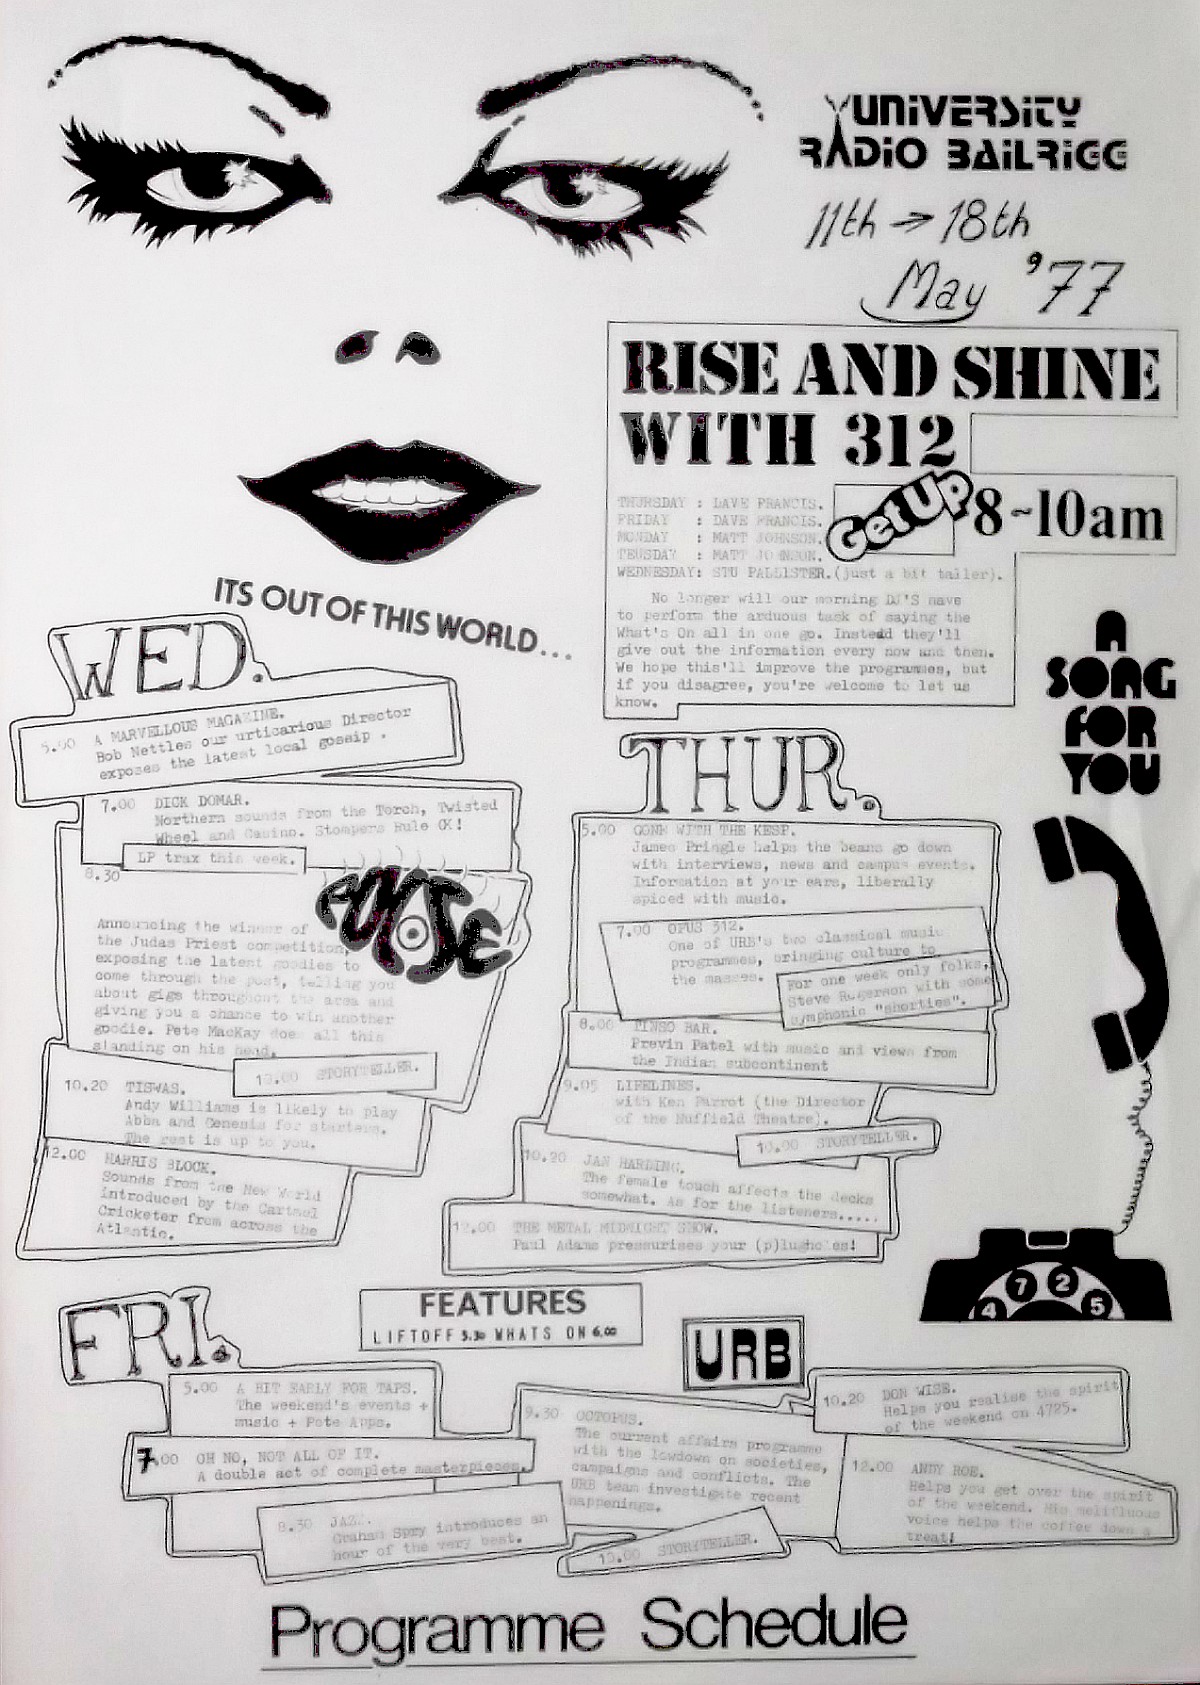 UNIVERSITY
RADIO BAILRIGG
11th → 18th
May '77
RISE AND SHINE
WITH 312
Get Up
8~10am
THURSDAY : DAVE FRANCIS.
FRIDAY : DAVE FRANCIS.
MONDAY : MATT JOHNSON.
TEUSDAY : MATT JOHNSON.
WEDNESDAY: STU PALLISTER.(just a bit taller).
No longer will our morning DJ'S have
to perform the arduous task of saying the
What's On all in one go. Instead they'll
give out the information every now and then.
We hope this'll improve the programmes, but
if you disagree, you're welcome to let us
know.
ITS OUT OF THIS WORLD...
A
SONG
FOR
YOU
WED.
5.00 A MARVELLOUS MAGAZINE.
Bob Nettles our urticarious Director
exposes the latest local gossip .
7.00 DICK DOMAR.
Northern sounds from the Torch, Twisted
Wheel and Casino. Stompers Rule OK!
LP trax this week.
8.30
Announcing the winner of
the Judas Priest competition,
exposing the latent goodies to
come through the post, telling you
about gigs throughout the area and
giving you a chance to win another
goodie. Pete MacKay does all this
standing on his head.
10.00 STORYTELLER.
10.20 TISWAS.
Andy Williams is likely to play
Abba and Genesis for starters.
The rest is up to you.
12.00 HARRIS BLOCK.
Sounds from the New World
introduced by the Cartmel
Cricketer from across the
Atlantic.
THUR.
5.00 GONE WITH THE KESP.
James Pringle helps the beans go down
with interviews, news and campus events.
Information at your ears, liberally
spiced with music.
7.00 OPUS 312.
One of URB's two classical music
programmes, bringing culture to
the masses.
For one week only folks,
Steve Rogerson with some
symphonic "shorties".
8.00 TINSO BAR.
Previn Patel with music and views from
the Indian subcontinent
9.05 LIFELINES.
with Ken Parrot (the Director
of the Nuffield Theatre).
10.00 STORYTELLER.
10.20 JAN HARDING.
The female touch affects the decks
somewhat. As for the listeners.....
12.00 THE METAL MIDNIGHT SHOW.
Paul Adams pressurises your (p)lugholes!
7 2
4 5
FEATURES
LIFTOFF 5.30 WHATS ON 6.00
URB
FRI.
5.00 A BIT EARLY FOR TAPS.
The weekend's events +
music + Pete Apps.
7.00 OH NO, NOT ALL OF IT.
A double act of complete masterpieces.
8.30 JAZZ.
Graham Spry introduces an
hour of the very best.
9.30 OCTOPUS.
The current affairs programme
with the lowdown on societies,
campaigns and conflicts. The
URB team investigate recent
happenings.
10.00 STORYTELLER.
10.20 DON WISE.
Helps you realise the spirit
of the weekend on 4725.
12.00 ANDY ROE.
Helps you get over the spirit
of the weekend. His melifluous
voice helps the coffee down a
treat!
Programme Schedule